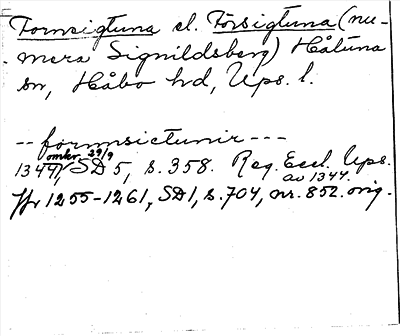 Fornsigtuna el. Försigtuna (nu-
mera Signildsberg) Håtuna
sn, Håbo hd, Ups. l.
-- fornnsictunir ---
omkr. 29/9
1344, SD 5, s. 358. Reg. Eccl. Ups.
av 1344.
1255-1261, SD 1, s. 704, nr. 852. orig.